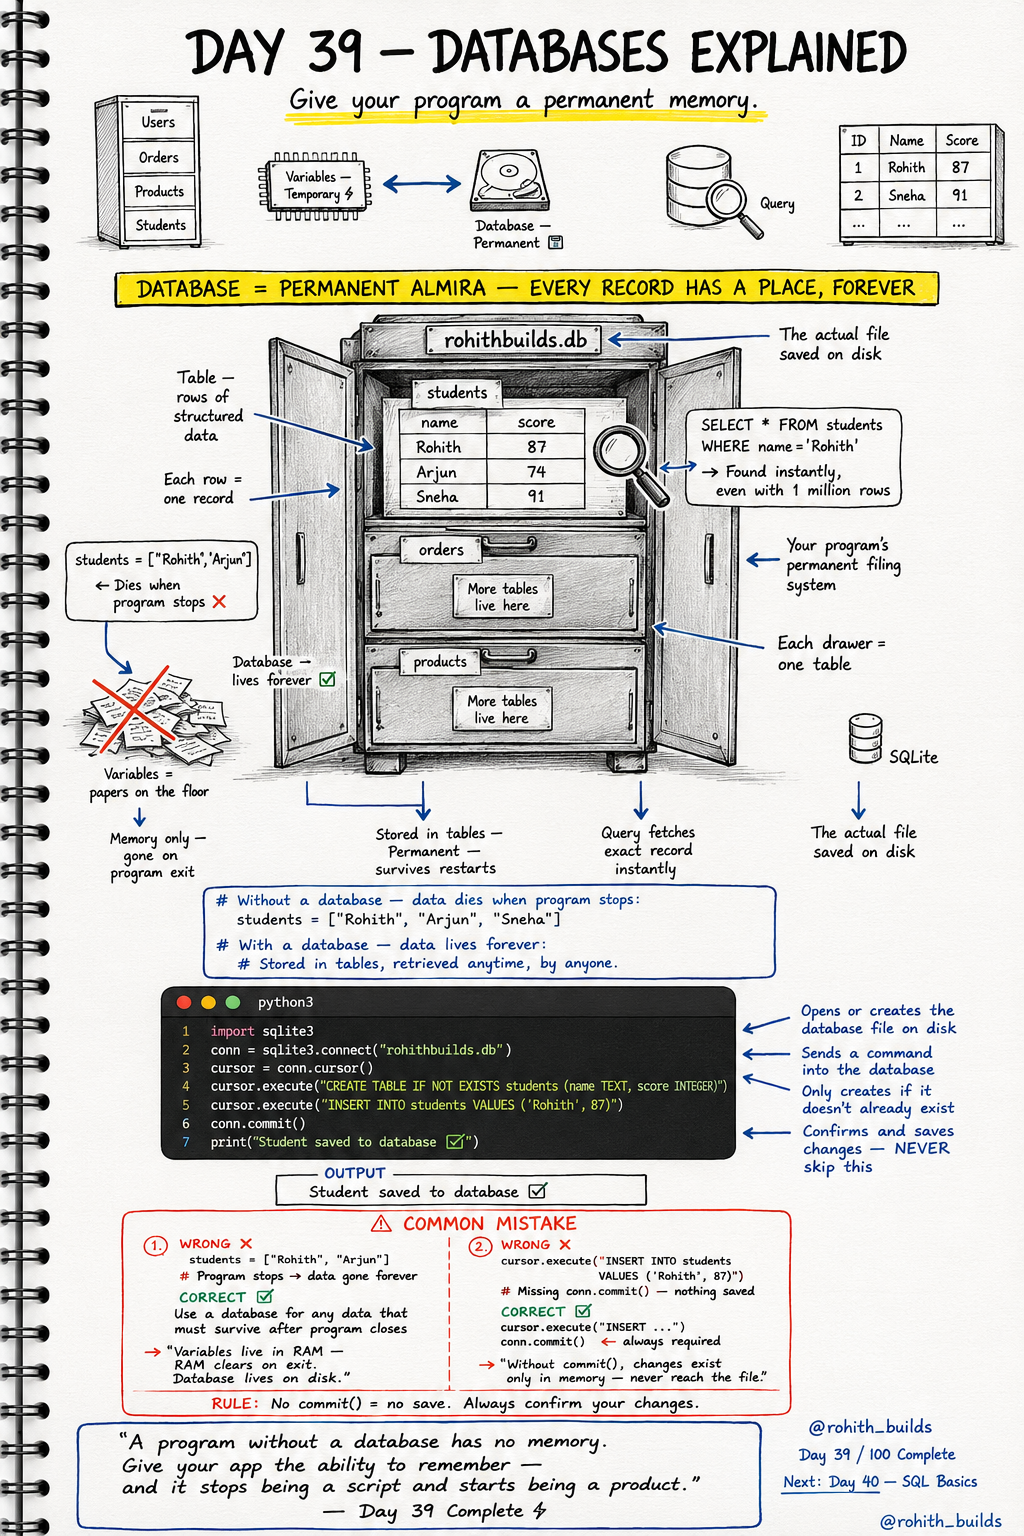 DAY 39 — DATABASES EXPLAINED
Give your program a permanent memory.
Users
Orders
Products
Students
Variables —
Temporary ⚡
Database —
Permanent 💾
Query
ID Name Score
1 Rohith 87
2 Sneha 91
... ... ...
DATABASE = PERMANENT ALMIRA — EVERY RECORD HAS A PLACE, FOREVER
rohithbuilds.db
The actual file
saved on disk
Table —
rows of
structured
data
Each row =
one record
students
name score
Rohith 87
Arjun 74
Sneha 91
SELECT * FROM students
WHERE name = 'Rohith'
→ Found instantly,
even with 1 million rows
students = ["Rohith", "Arjun"]
← Dies when
program stops ❌
orders
More tables
live here
Your program's
permanent filing
system
Each drawer =
one table
Database —
lives forever ✅
products
More tables
live here
SQLite
Variables =
papers on the floor
Memory only —
gone on
program exit
Stored in tables —
Permanent —
survives restarts
Query fetches
exact record
instantly
The actual file
saved on disk
# Without a database — data dies when program stops:
students = ["Rohith", "Arjun", "Sneha"]
# With a database — data lives forever:
# Stored in tables, retrieved anytime, by anyone.
python3
1 import sqlite3
2 conn = sqlite3.connect("rohithbuilds.db")
3 cursor = conn.cursor()
4 cursor.execute("CREATE TABLE IF NOT EXISTS students (name TEXT, score INTEGER)")
5 cursor.execute("INSERT INTO students VALUES ('Rohith', 87)")
6 conn.commit()
7 print("Student saved to database ✅")
Opens or creates the
database file on disk
Sends a command
into the database
Only creates if it
doesn't already exist
Confirms and saves
changes — NEVER
skip this
OUTPUT
Student saved to database ☑
⚠ COMMON MISTAKE
1. WRONG ❌
students = ["Rohith", "Arjun"]
# Program stops → data gone forever
CORRECT ✅
Use a database for any data that
must survive after program closes
→ "Variables live in RAM —
RAM clears on exit.
Database lives on disk."
2. WRONG ❌
cursor.execute("INSERT INTO students
VALUES ('Rohith', 87)")
# Missing conn.commit() — nothing saved
CORRECT ✅
cursor.execute("INSERT ...")
conn.commit() ← always required
→ "Without commit(), changes exist
only in memory — never reach the file."
RULE: No commit() = no save. Always confirm your changes.
"A program without a database has no memory.
Give your app the ability to remember —
and it stops being a script and starts being a product."
— Day 39 Complete ⚡
@rohith_builds
Day 39 / 100 Complete
Next: Day 40 — SQL Basics
@rohith_builds